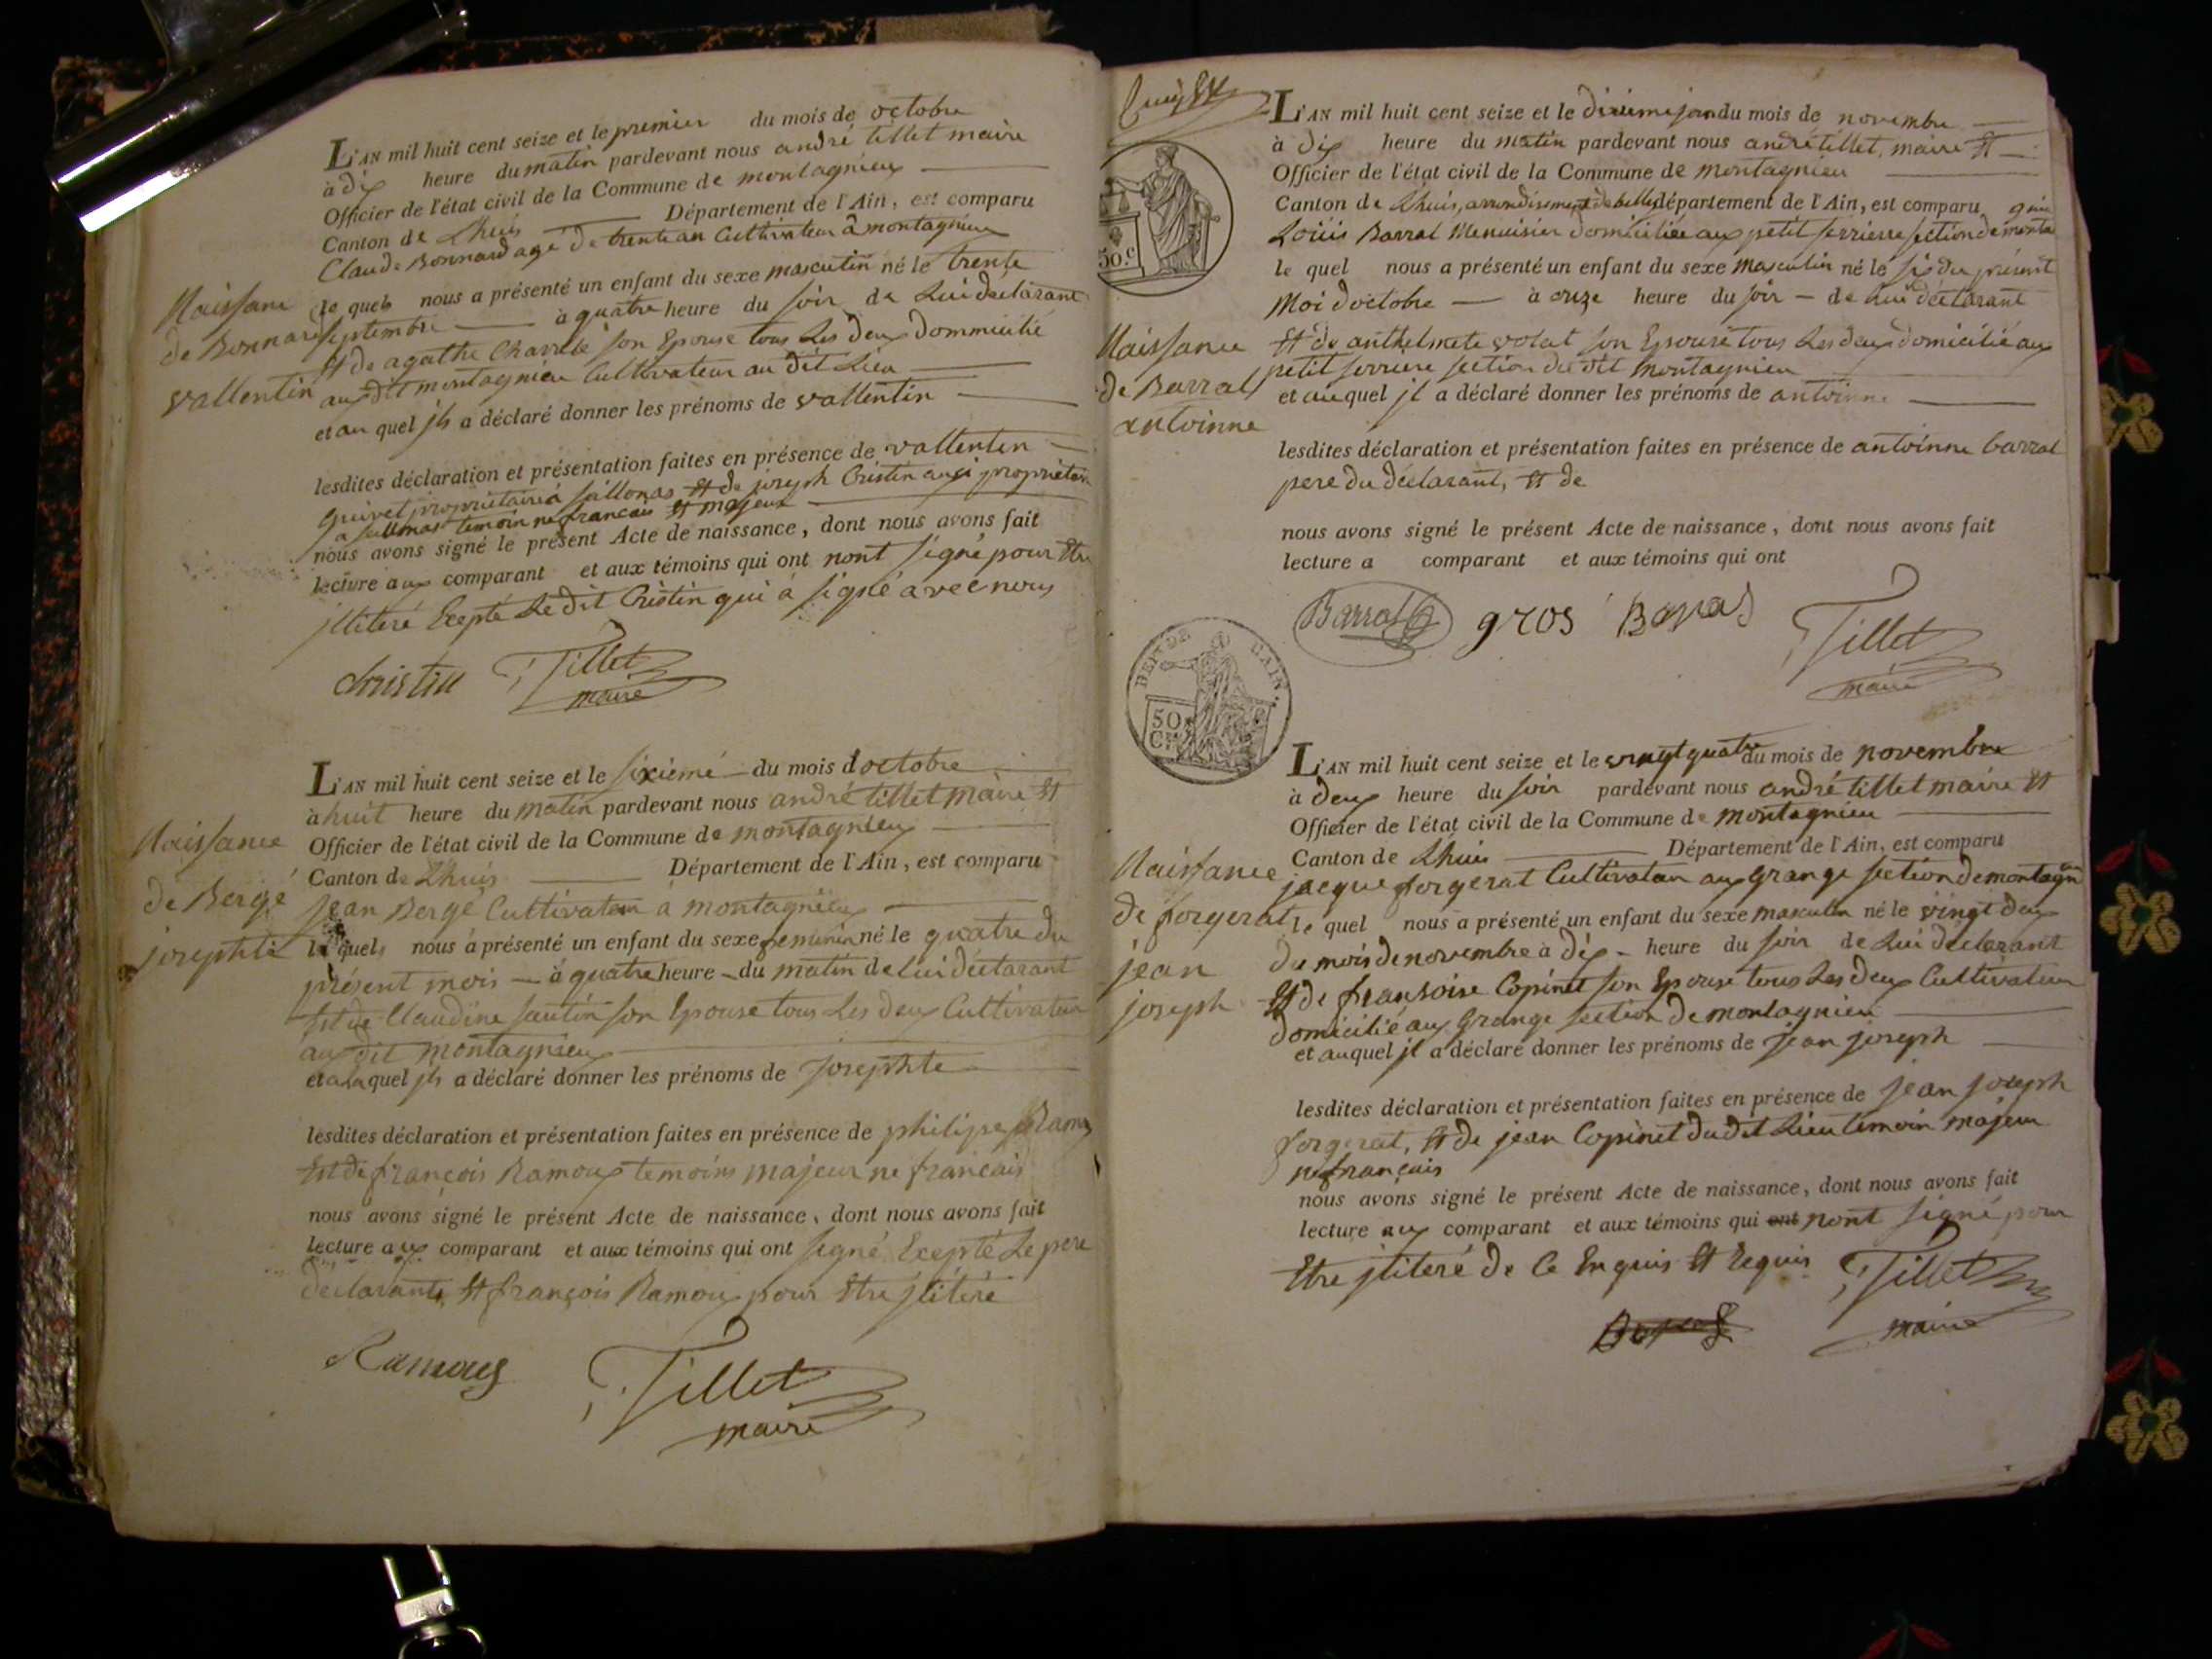 L'AN mil huit cent seize et le premier du mois de octobre
à dix heure du matin pardevant nous andré tillet maire
Officier de l'état civil de la Commune de montagnieux
Canton de Lhuis Département de l'Ain, est comparu
Claude Bonnard agé de trente an Cultivateur à montagnieux
le quel nous a présenté un enfant du sexe masculin né le trente
septembre à quatre heure du soir de Lui déclarant
Et de agathe son Epouse tous Les deux dommicilié
au dit montagnieu Cultivateur au dit Lieu
et au quel jls a déclaré donner les prénoms de vallentin
Naissance
de Bonnard
vallentin
lesdites déclaration et présentation faites en présence de vallentin
quivet propriétaire à Sallonas Et de joseph Cristin aussi propriétaire
a Sallonas temoin ne francais Et majeur
nous avons signé le présent Acte de naissance, dont nous avons fait
lecture aux comparant et aux témoins qui ont nont signé pour Etre
jlliteré Exepté Le dit Cristin qui à signé avec nous
christin Tillet
maire
L'AN mil huit cent seize et le sixiemé du mois d octobre
à huit heure du matin pardevant nous andré tillet maire Et
Officier de l'état civil de la Commune de montagnieux
Canton de Lhuis Département de l'Ain, est comparu
jean Bergé Cultivateur à montagnieux
le quel nous a présenté un enfant du sexe feminin né le quatre du
présent mois à quatre heure du matin de lui déclarant
Et de Claudine sautin son Epouse tous Les deux Cultivateur
au dit montagnieux
et a laquel jls a déclaré donner les prénoms de josephte
Naissance
de Bergé
josephte
lesdites déclaration et présentation faites en présence de philipe Ramoux
Et de françois Ramoux temoins majeur ne francais
nous avons signé le présent Acte de naissance, dont nous avons fait
lecture aux comparant et aux témoins qui ont signé Exepté Le pere
declarant Et françois Ramoux pour Etre jlitéré
Ramoux Tillet
maire
50.c
L'AN mil huit cent seize et le dixieme jour du mois de novembre
à dix heure du matin pardevant nous andré tillet, maire Et
Officier de l'état civil de la Commune de montagnieu
Canton de Lhuis, arrondisement de belley département de l'Ain, est comparu
Loüis Barral Menuisier domiciliée aux petit serriere section de montagnieu
le quel nous a présenté un enfant du sexe masculin né le six du présent
Moi d'octobre à onze heure du soir de Lui déclarant
Et de anthelmete volat son Epouse tous Les deux domicilié aux
petit serriere section du dit montagnieu
et au quel jl a déclaré donner les prénoms de antoinne
Naissance
de Barral
antoinne
lesdites déclaration et présentation faites en présence de antoinne barral
pere du déclarant, Et de
nous avons signé le présent Acte de naissance, dont nous avons fait
lecture a comparant et aux témoins qui ont
Barral gros Tillet
maire
50
C.
L'AN mil huit cent seize et le vingt quatre du mois de novembre
à deux heure du soir pardevant nous andré tillet maire Et
Officier de l'état civil de la Commune de montagnieu
Canton de Lhuis Département de l'Ain, est comparu
jacque forgerat Cultivateur aux Grange section de montagnieu
le quel nous a présenté un enfant du sexe masculin né le vingt deux
du mois de novembre à dix heure du soir de Lui déclarant
Et de fransoise Copinet son Epouse tous Les deux Cultivateur
domicilié aux Grange section de montagnieu
et auquel jl a déclaré donner les prénoms de jean joseph
Naissance
de forgerat
jean
joseph
lesdites déclaration et présentation faites en présence de jean joseph
forgerat, Et de jean Copinet du dit Lieu temoin majeur
ne français
nous avons signé le présent Acte de naissance, dont nous avons fait
lecture aux comparant et aux témoins qui ont nont signé pour
Etre jliteré de Ce Enquis Et Requis Tillet
maire